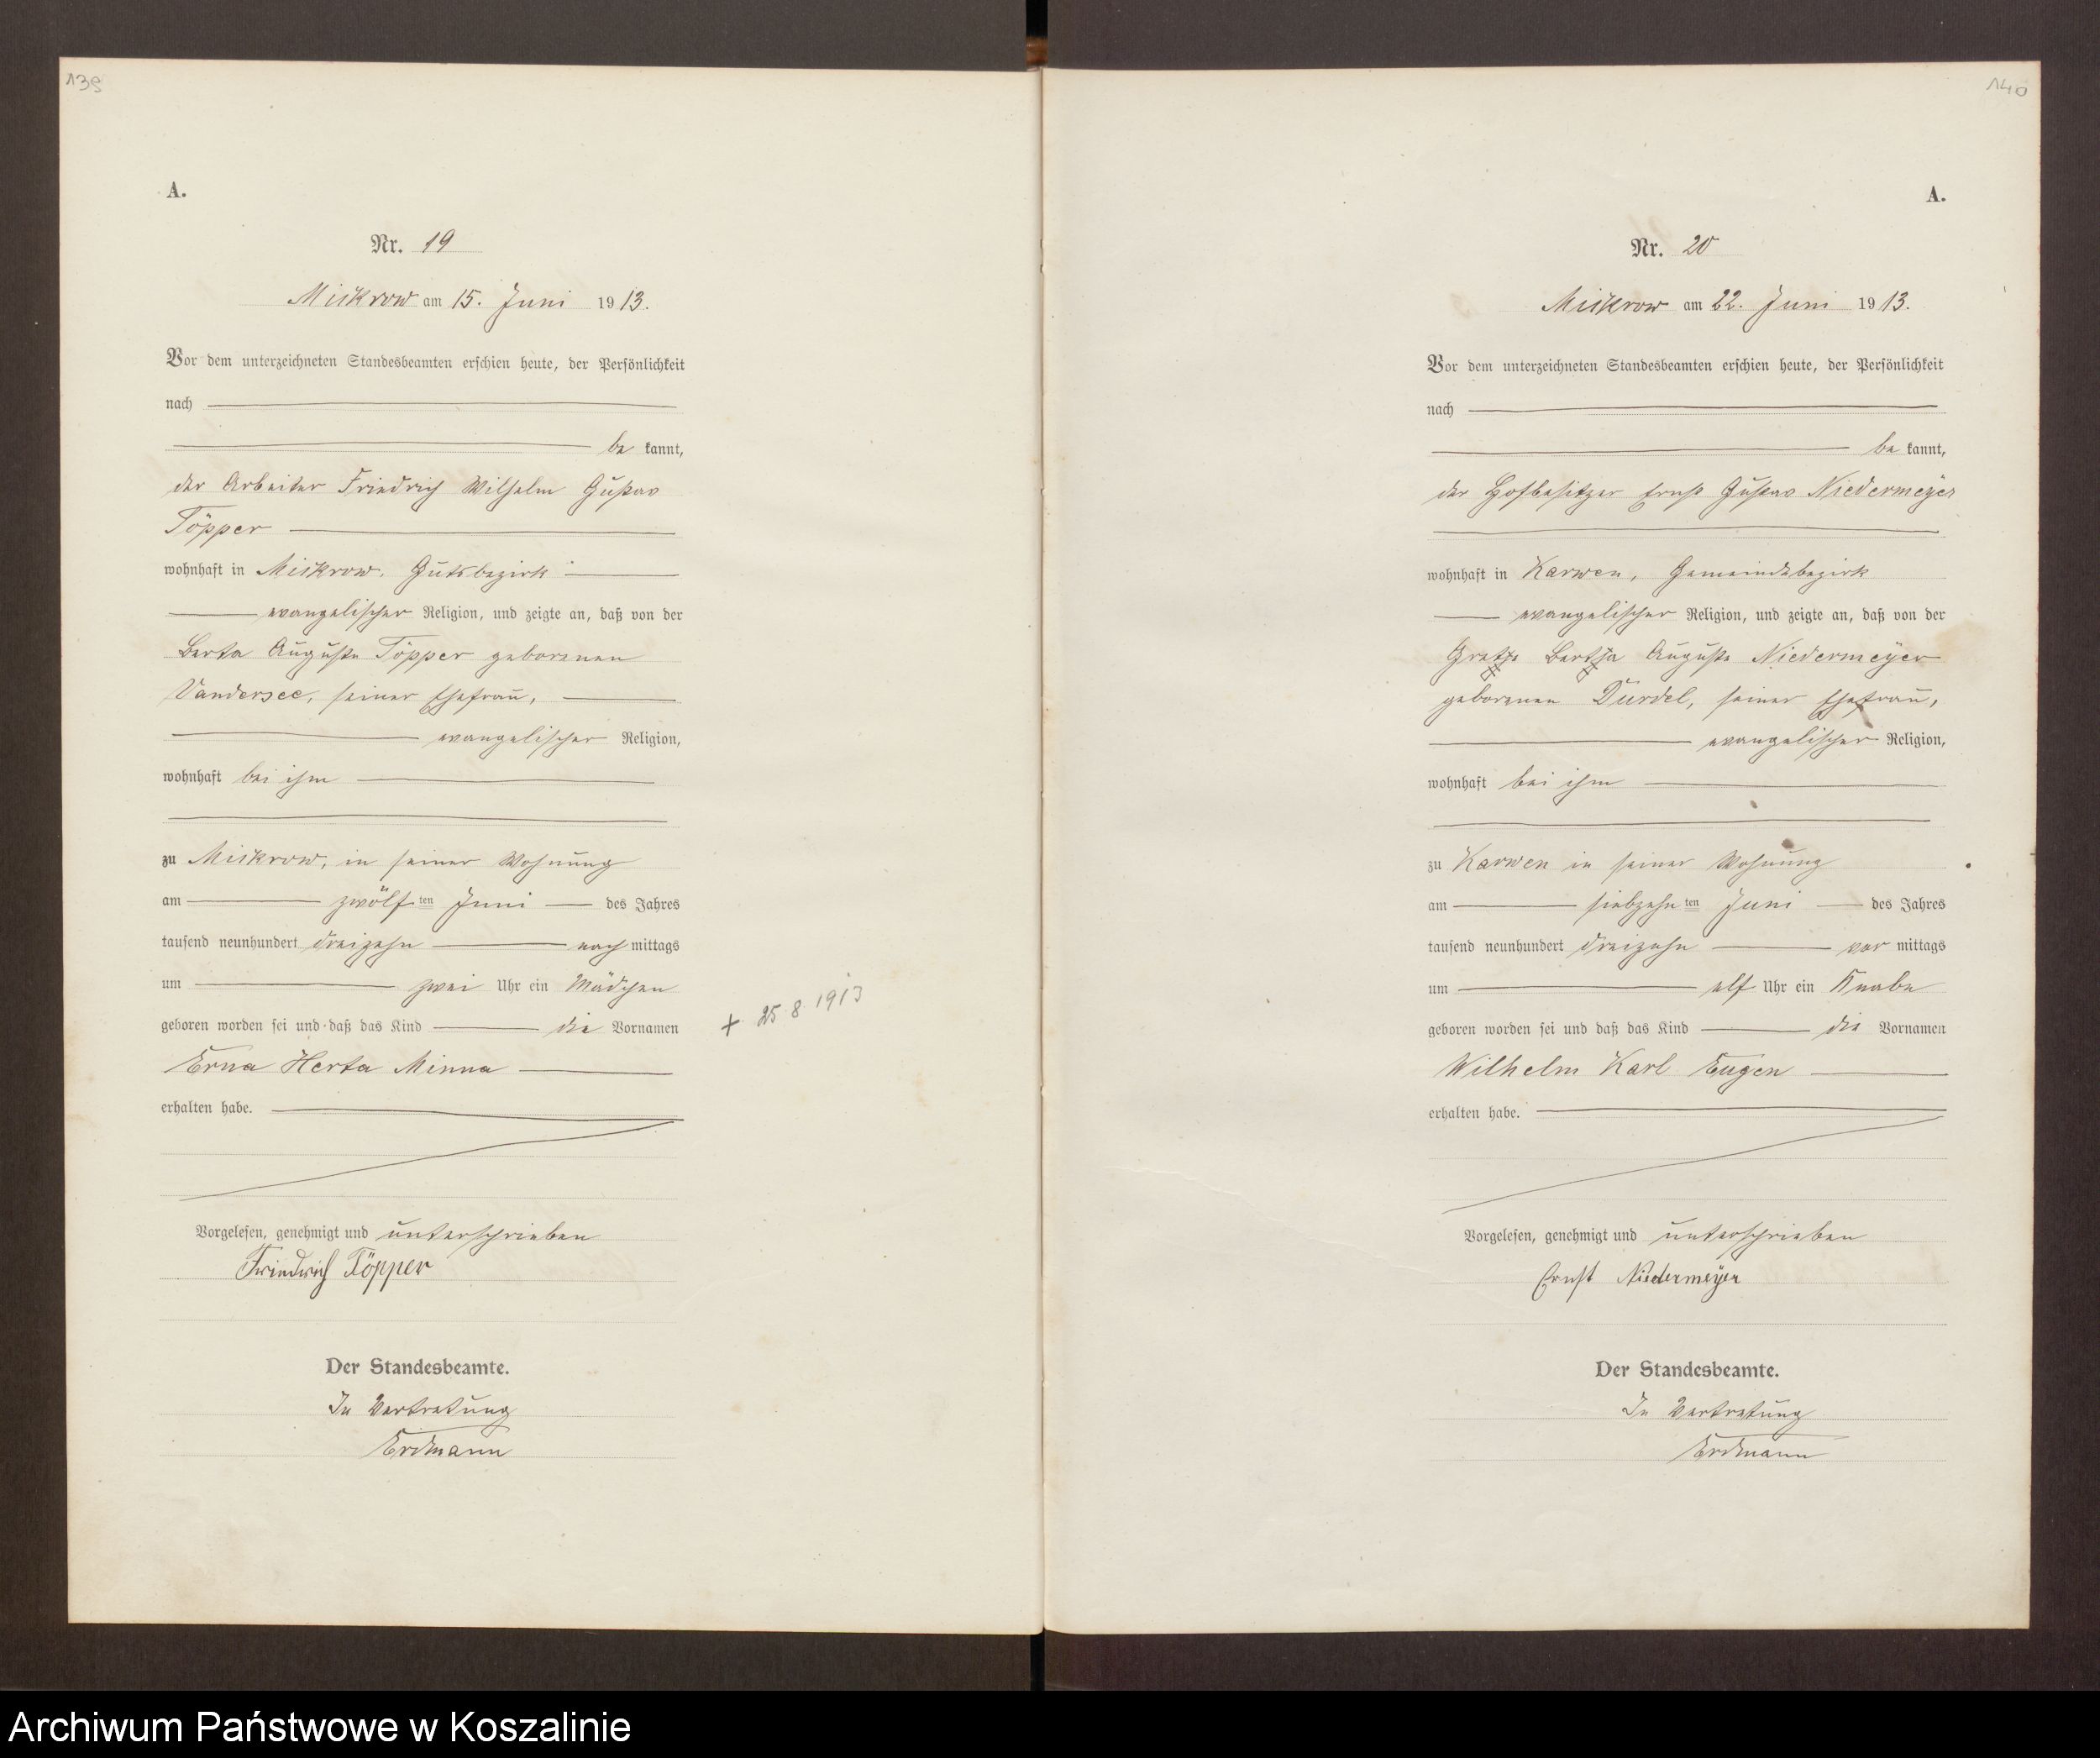 139
A.
Nr. 19
Mickrow am 15. Juni 1913.
Vor dem unterzeichneten Standesbeamten erschien heute, der Persönlichkeit
nach
be kannt,
der Arbeiter Friedrich Wilhelm Gustav
Töpper
wohnhaft in Mickrow, Gutsbezirk
evangelischer Religion, und zeigte an, daß von der
Berta Auguste Töpper geborenen
Vandersee, seiner Ehefrau,
evangelischer Religion,
wohnhaft bei ihm
zu Mickrow, in seiner Wohnung
am zwölf ten Juni des Jahres
tausend neunhundert dreizehn nach mittags
um zwei Uhr ein Mädchen
geboren worden sei und daß das Kind die Vornamen
+ 25. 8. 1913
Erna Herta Minna
erhalten habe.
Vorgelesen, genehmigt und unterschrieben
Friedrich Töpper
Der Standesbeamte.
In Vertretung
Erdmann
140
A.
Nr. 20
Mickrow am 22. Juni 1913.
Vor dem unterzeichneten Standesbeamten erschien heute, der Persönlichkeit
nach
be kannt,
der Hofbesitzer Ernst Gustav Niedermeyer
wohnhaft in Karwen, Gemeindebezirk
evangelischer Religion, und zeigte an, daß von der
Berta Auguste Niedermeyer
geborenen Durdel, seiner Ehefrau,
evangelischer Religion,
wohnhaft bei ihm
zu Karwen in seiner Wohnung
am siebzehn ten Juni des Jahres
tausend neunhundert dreizehn vor mittags
um elf Uhr ein Knabe
geboren worden sei und daß das Kind die Vornamen
Wilhelm Karl Eugen
erhalten habe.
Vorgelesen, genehmigt und unterschrieben
Ernst Niedermeyer
Der Standesbeamte.
In Vertretung
Erdmann
Archiwum Państwowe w Koszalinie